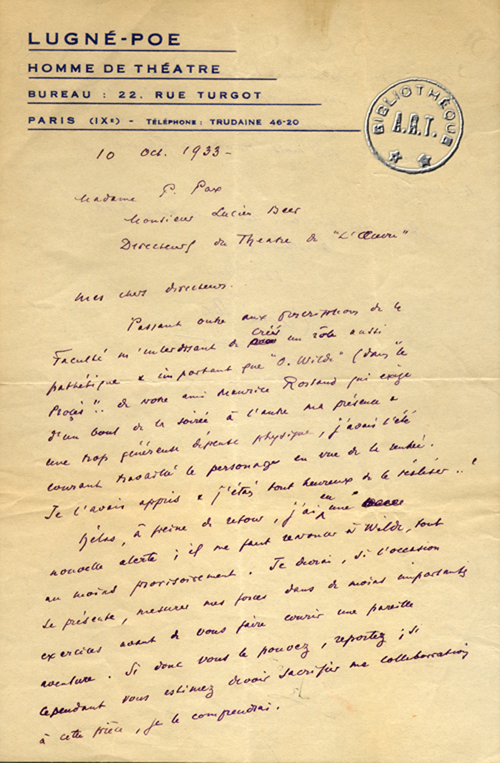 LUGNÉ-POE
HOMME DE THÉATRE
BUREAU : 22, RUE TURGOT
PARIS (IXe) - TÉLÉPHONE : TRUDAINE 46-20
BIBLIOTHÈQUE
A.R.T.
10 Oct. 1933 -
Madame P. Pax
Monsieur Lucien Beer
Directeurs du Theatre de "L'Œuvre"
Mes chers directeurs.
Passant outre aux prescriptions de la
Faculté m'interdisant de créer un rôle aussi
pathétique & important que "O. Wilde" (dans "le
Procès"!. de notre ami Maurice Rostand qui exige
d'un bout de la soirée à l'autre ma présence &
une trop généreuse dépense physique, j'avais l'été
courant travaillé le personnage en vue de la rentrée.
Je l'avais appris & j'étais tout heureux de le réaliser..!
Hélas, à peine de retour, j'ai eu une
nouvelle alerte ; il me faut renoncer à Wilde, tout
au moins provisoirement. Je devrai, si l'occasion
se présente, mesurer mes forces dans de moins importants
exercices avant de vous faire courir une pareille
aventure. Si donc vous le pouvez, reportez ; si
cependant vous estimez devoir sacrifier ma collaboration
à cette pièce, je le comprendrai.